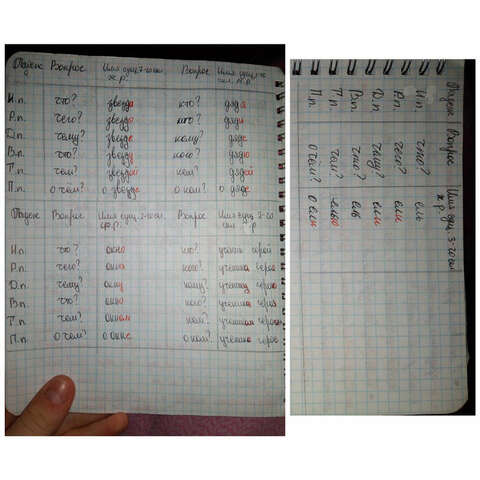 Падеж Вопрос Имя сущ. 1-го скл. ж.р. Вопрос Имя сущ. 1-го скл. м.р.
И.п. что? звезда кто? дядя
Р.п. чего? звезды кого? дяди
Д.п. чему? звезде кому? дяде
В.п. что? звезду кого? дядю
Т.п. чем? звездой кем? дядей
П.п. о чем? о звезде о ком? о дяде
Падеж Вопрос Имя сущ. 2-го скл. ср.р. Вопрос Имя сущ. 2-го скл. м.р.
И.п. что? окно кто? ученик герой
Р.п. чего? окна кого? ученика героя
Д.п. чему? окну кому? ученику герою
В.п. что? окно кого? ученика героя
Т.п. чем? окном кем? учеником героем
П.п. о чем? о окне о ком? ученике герое
Падеж Вопрос Имя сущ. 3-го скл. ж.р.
И.п. что? ель
Р.п. чего? ели
Д.п. чему? ели
В.п. что? ель
Т.п. чем? елью
П.п. о чем? о ели